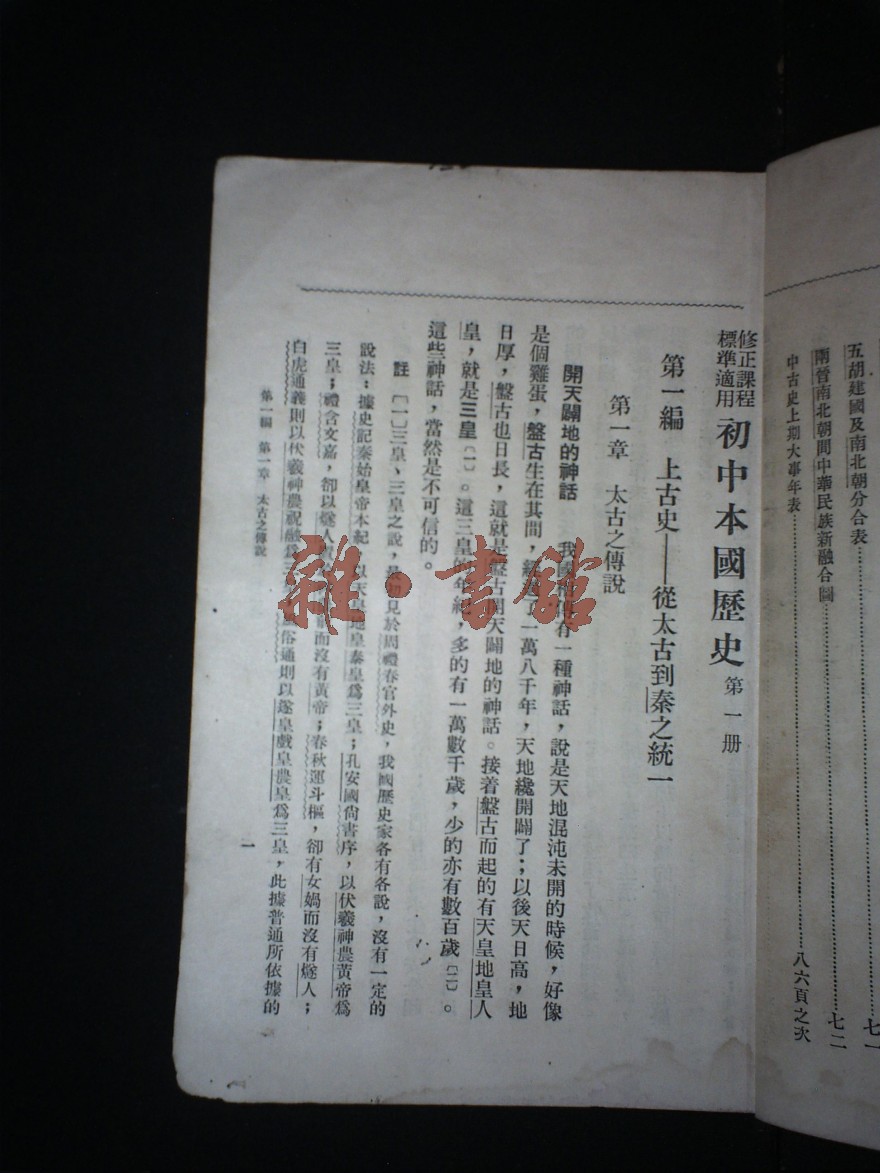 五胡建國及南北朝分合表……七一
兩晉南北朝間中華民族新融合圖……七二
中古史上期大事年表……八六頁之次
修正課程標準適用 初中本國歷史 第一册
第一編 上古史——從太古到秦之統一
第一章 太古之傳說
開天闢地的神話 我國 有一種神話，說是天地混沌未開的時候，好像
是個雞蛋，盤古生在其間，經過了一萬八千年，天地纔開闢了；以後天日高，地
日厚，盤古也日長，這就是盤古開天闢地的神話。接着盤古而起的有天皇地皇人
皇，就是三皇〔一〕。這三皇的年紀，多的有一萬數千歲，少的亦有數百歲〔二〕。
這些神話，當然是不可信的。
註 〔一〕三皇、三皇之說，最初見於周禮春官外史，我國歷史家各有各說，沒有一定的
說法：據史記秦始皇帝本紀，以天皇地皇泰皇爲三皇；孔安國尚書序，以伏羲神農黃帝爲
三皇；禮含文嘉，卻以燧人 而沒有黃帝；春秋運斗樞，卻有女媧而沒有燧人；
白虎通義則以伏羲神農祝融爲三 風俗通則以遂皇戲皇農皇爲三皇，此據普通所依據的
第一編 第一章 太古之傳說
一
雜·書館